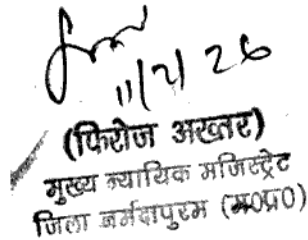 11/2/26
(फिरोज अख्तर)
मुख्य न्यायिक मजिस्ट्रेट
जिला नर्मदापुरम (म0प्र0)